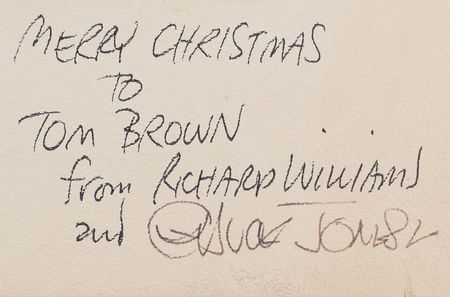 MERRY CHRISTMAS
TO
TOM BROWN
from RICHARD WILLIAMS
and CHUCK JONES